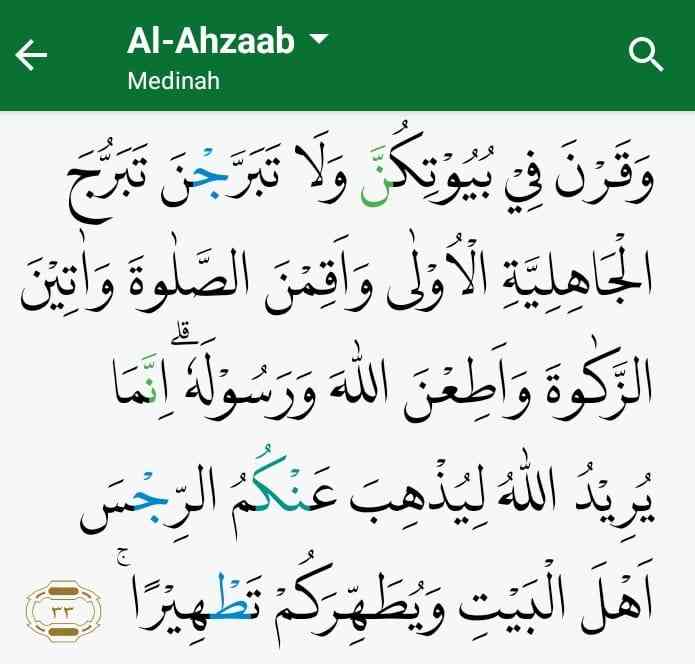 Al-Ahzaab
Medinah
وَقَرْنَ فِيْ بُيُوْتِكُنَّ وَلَا تَبَرَّجْنَ تَبَرُّجَ
الْجَاهِلِيَّةِ الْاُوْلٰى وَاَقِمْنَ الصَّلٰوةَ وَاٰتِيْنَ
الزَّكٰوةَ وَاَطِعْنَ اللّٰهَ وَرَسُوْلَهٗ ۗاِنَّمَا
يُرِيْدُ اللّٰهُ لِيُذْهِبَ عَنْكُمُ الرِّجْسَ
اَهْلَ الْبَيْتِ وَيُطَهِّرَكُمْ تَطْهِيْرًاۚ ٣٣